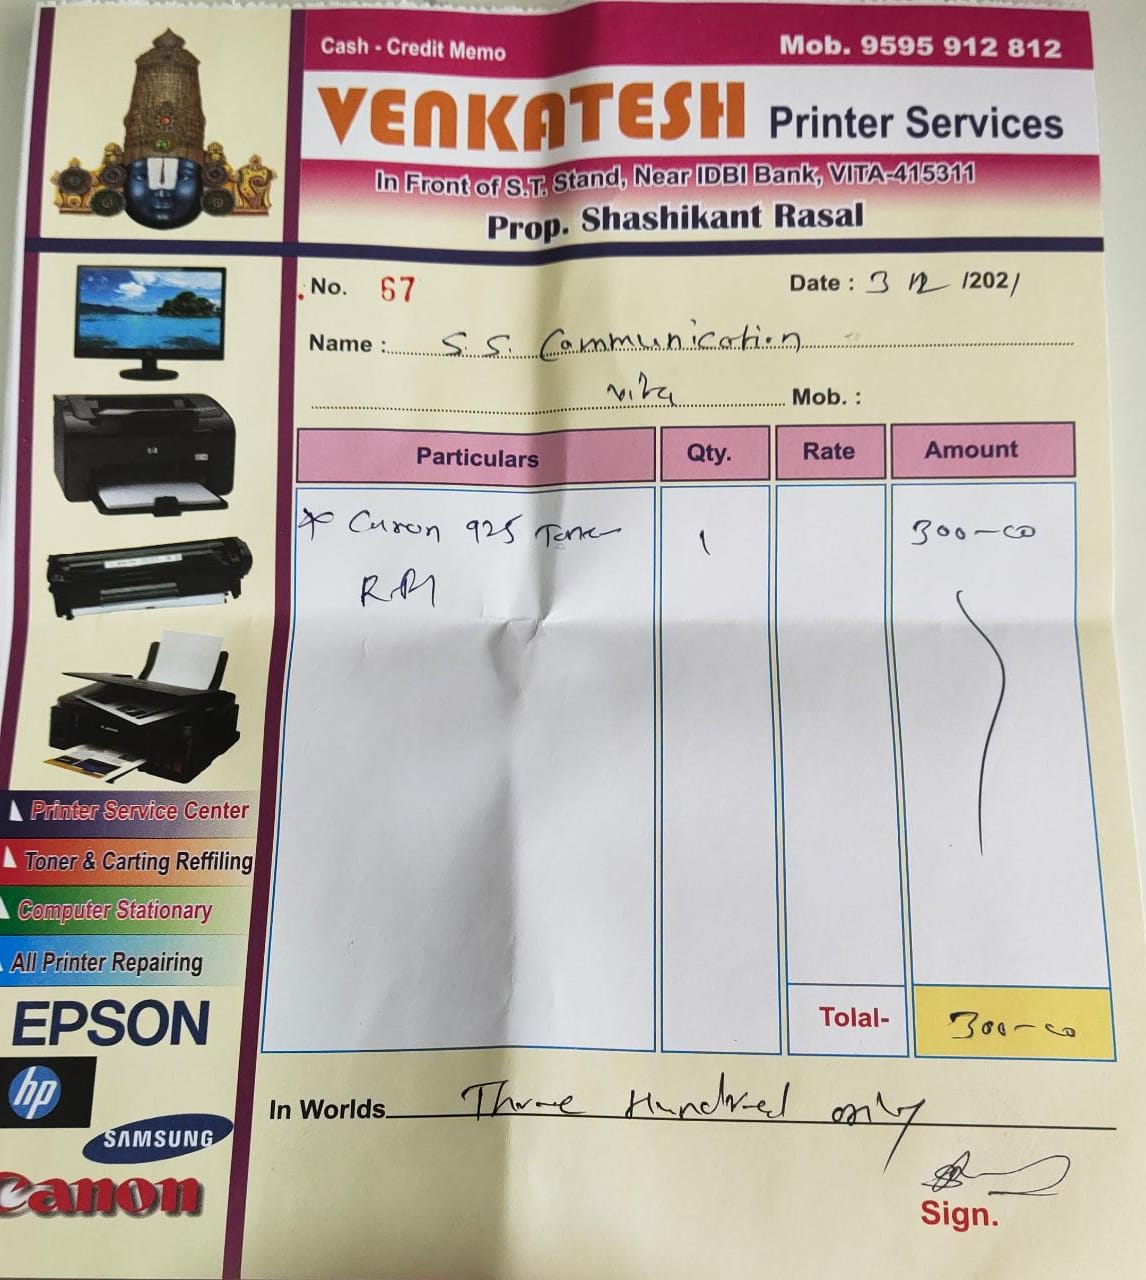 Cash - Credit Memo
Mob. 9595 912 812
VENKATESH Printer Services
In Front of S.T. Stand, Near IDBI Bank, VITA-415311
Prop. Shashikant Rasal
No. 67
Date : 3 12 /2021
Name : S. S. Communication
Vita Mob. :
Particulars Qty. Rate Amount
* Canon 925 Toner 1 300-00
Total-
300-00
In Worlds Three Hundred only
Sign.
hp
Printer Service Center
Toner & Carting Reffiling
Computer Stationary
All Printer Repairing
EPSON
hp
SAMSUNG
Canon